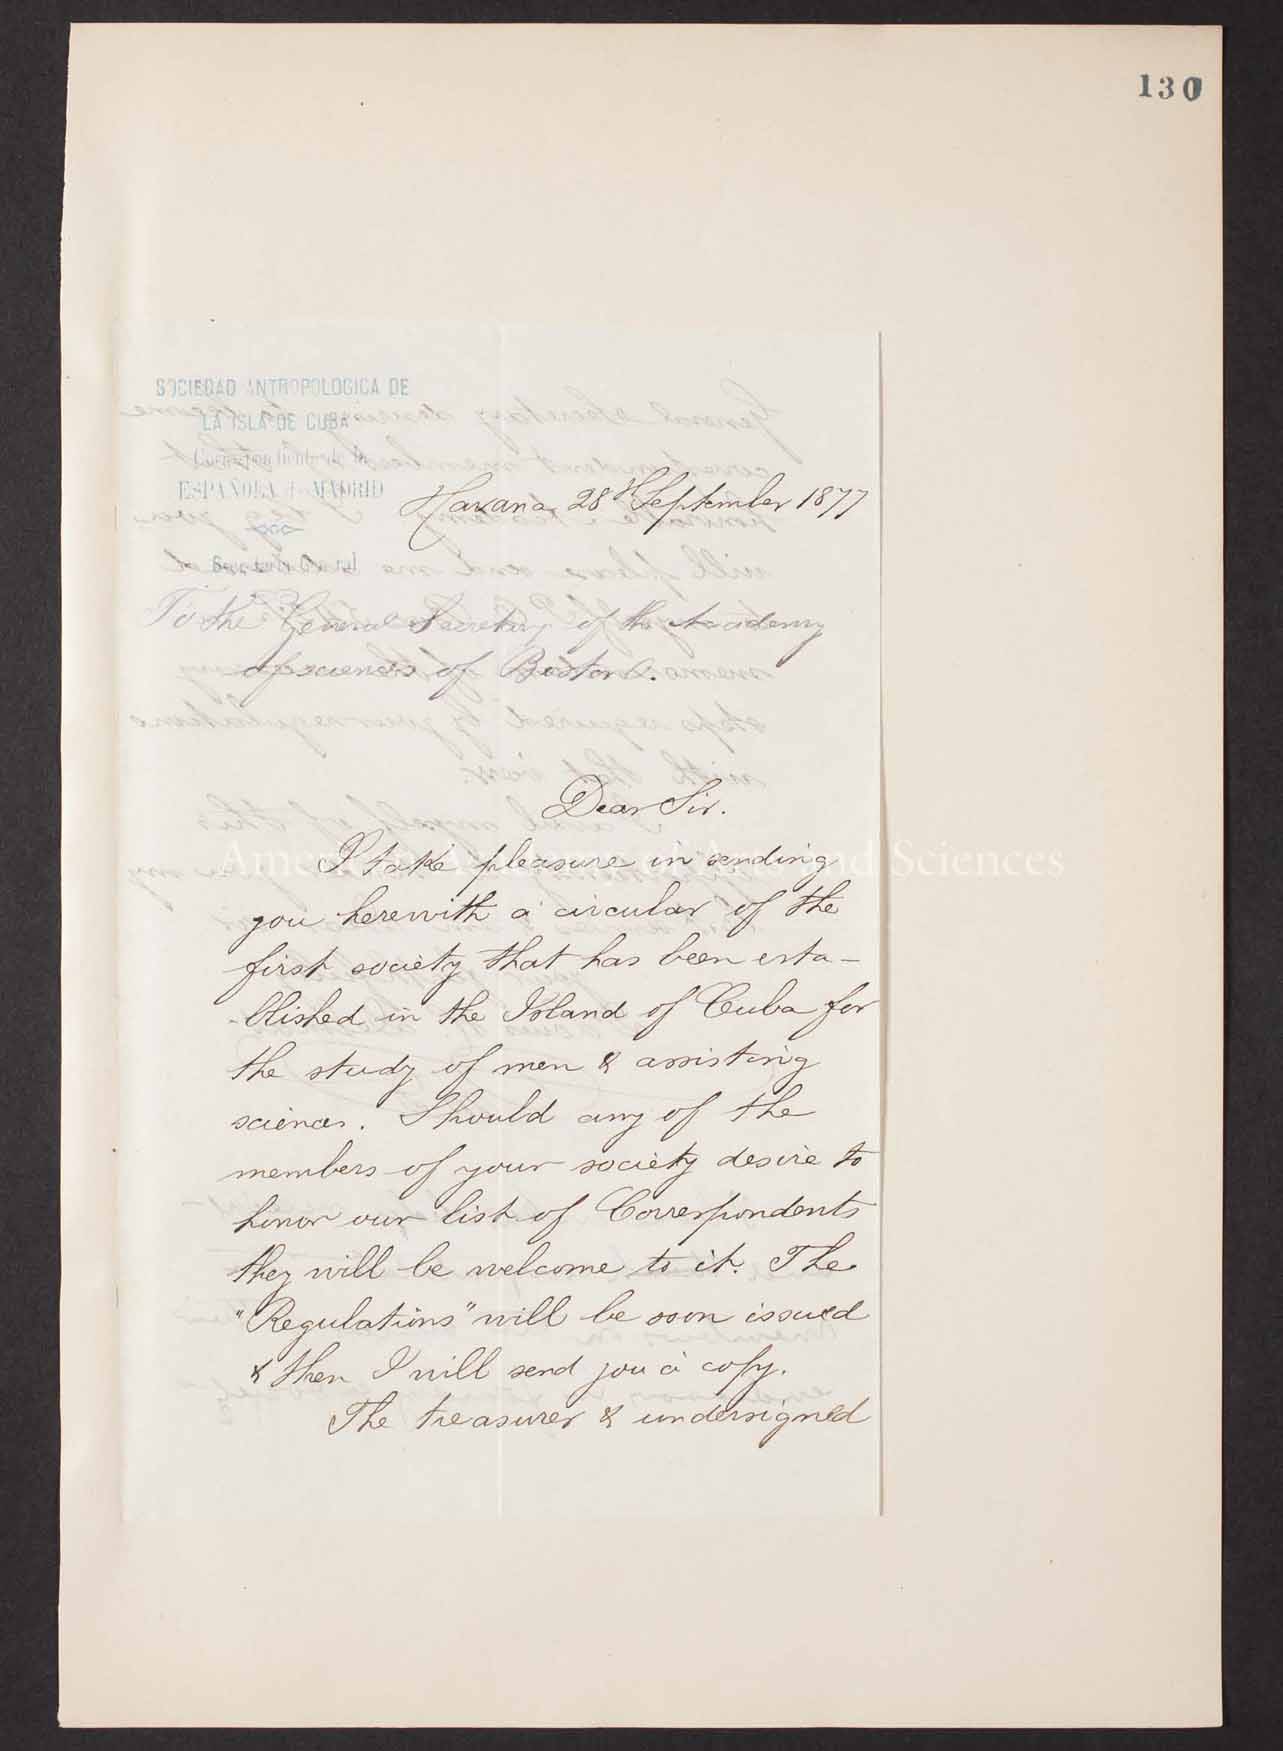 130
SOCIEDAD ANTROPOLOGICA DE
LA ISLA DE CUBA
Correspondiente de la
ESPAÑOLA de MADRID
Secretaria General
Havana, 28th September 1877
To the General Secretary of the Academy
of sciences of Boston.
Dear Sir.
I take pleasure in sending
you herewith a circular of the
first society that has been esta-
-blished in the Island of Cuba for
the study of men & assisting
sciences. Should any of the
members of your society desire to
honor our list of Correspondents
they will be welcome to it. The
"Regulations" will be soon issued
& then I will send you a copy.
The treasurer & undersigned
American Academy of Arts and Sciences